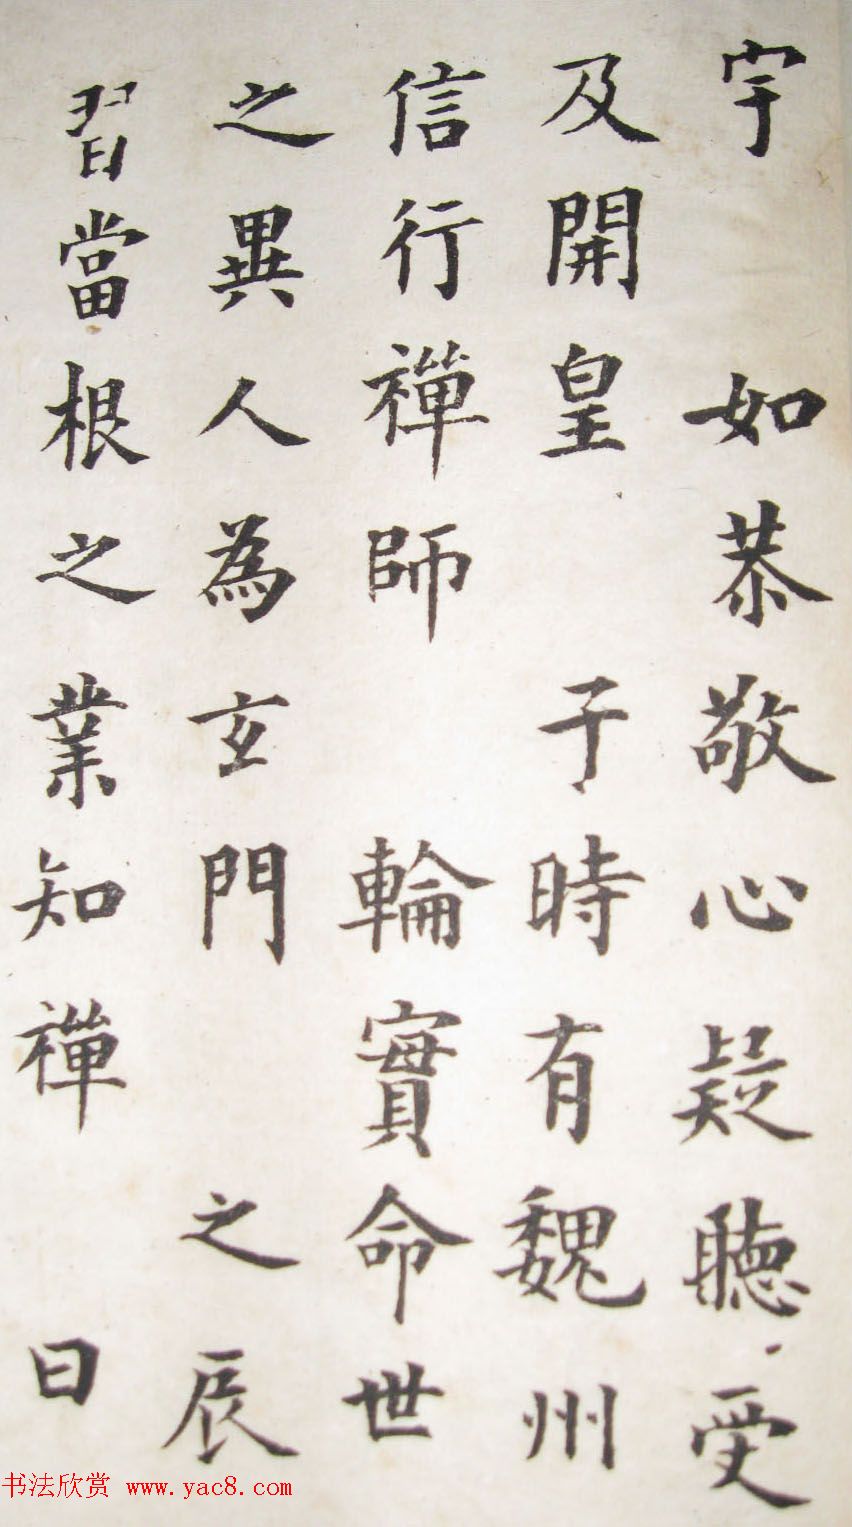 宇 如恭敬心疑聽受
及開皇 于時有魏州
信行禪師 輪實命世
之異人為玄門 之辰
習當根之業知禪 日
书法欣赏 www.yac8.com